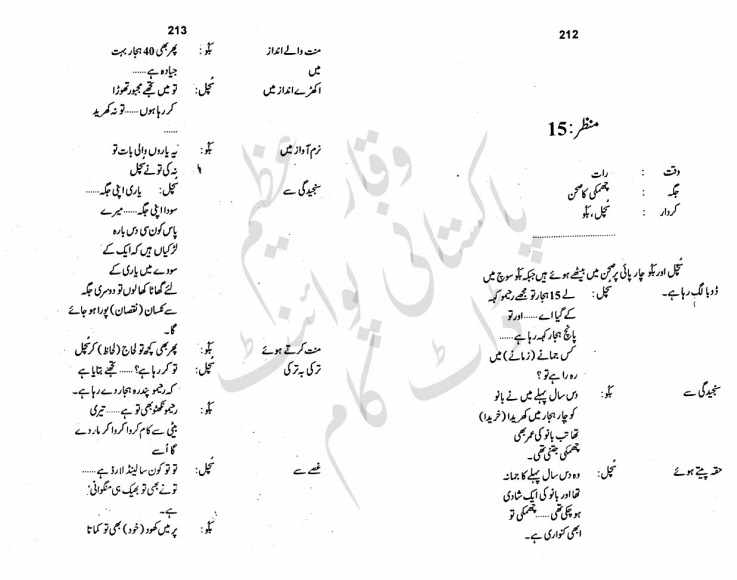 212
منظر:15
وقت : رات
جگہ : چھمکی کا صحن
کردار : سُچل، بگو
سُچل اور بگو چارپائی پر صحن میں بیٹھے ہوئے ہیں جبکہ بگو سوچ میں
ڈوبا لگ رہا ہے۔
سُچل: لے 15 ہجار تو مجھے رحیمو کہہ
کے گیا اے ...... اور تو
پانچ ہجار کہہ رہا ہے ......
کس جمانے (زمانے) میں
رہ رہا ہے تو؟
سنجیدگی سے بگو: دس سال پہلے میں نے بانو
کو چار ہجار میں کھریدا (خریدا)
تھا تب بانو کی عمر بھی
چھمکی جتنی تھی۔
حقہ پیتے ہوئے سُچل: وہ دس سال پہلے کا جمانہ
تھا اور بانو کی ایک شادی
ہو چکی تھی ...... چھمکی تو
ابھی کنواری ہے۔
213
منت والے انداز میں بگو: پھر بھی 40 ہجار بہت
جیادہ ہے ......
اکھڑے انداز میں سُچل: تو میں تجھے مجبور تھوڑا
کر رہا ہوں ...... تو نہ کھرید
......
نرم آواز میں بگو: یہ یاروں والی بات تو
نہ کی تو نے سُچل
سنجیدگی سے سُچل: یاری اپنی جگہ ......
سودا اپنی جگہ ...... میرے
پاس کون سی دس بارہ
لڑکیاں ہیں کہ ایک کے
سودے میں یاری کے
لئے گھاٹا کھا لوں تو دوسری جگہ
سے نکسان (نقصان) پورا ہو جائے
گا۔
منت کرتے ہوئے بگو: پھر بھی کچھ تو لحاج (لحاظ) کر سُچل
ترکی بہ ترکی سُچل: تو کر رہا ہے؟ ...... تجھے بتایا ہے
کہ رحیمو پندرہ ہجار دے رہا ہے۔
بگو: رحیمو نکھٹو بھی تو ہے ...... تیری
بیٹی سے کام کروا کروا کر مار دے
گا اُسے
غصے سے سُچل: تو تو کون سا لینڈ لارڈ ہے ......
تو نے بھی تو بھیک ہی منگوانی
ہے۔
بگو: پر میں کھود (خود) بھی تو کماتا
وقار عظیم
پاکستانی پوائنٹ
ڈاٹ کام